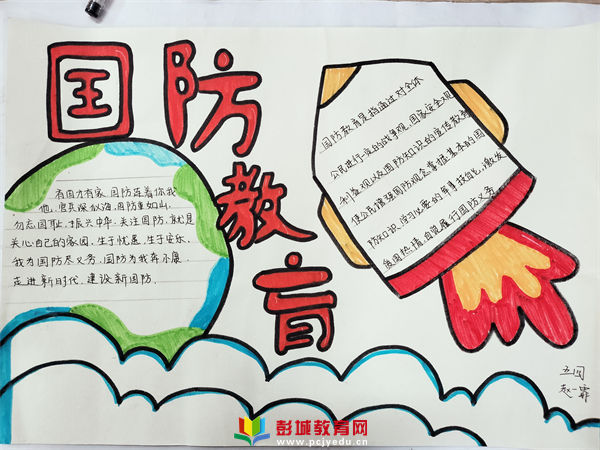 国防教育
有国才有家,国防连着你我
他,官兵深似海,国防重如山,
勿忘国耻,振兴中华.关注国防,就是
关心自己的家园,生于忧患,生于安乐,
我为国防尽义务,国防为我奔小康,
走进新时代,建设新国防,
国防教育是指通过对全体
公民进行一定的战争观,国家安全观
利益观以及国防知识的宣传教育
使公民增强国防观念掌握基本的国
防知识,学习必要的军事技能,激发
爱国热情,自觉履行国防义务
五四
赵一霏
彭城教育网
www.pcjyedu.cn